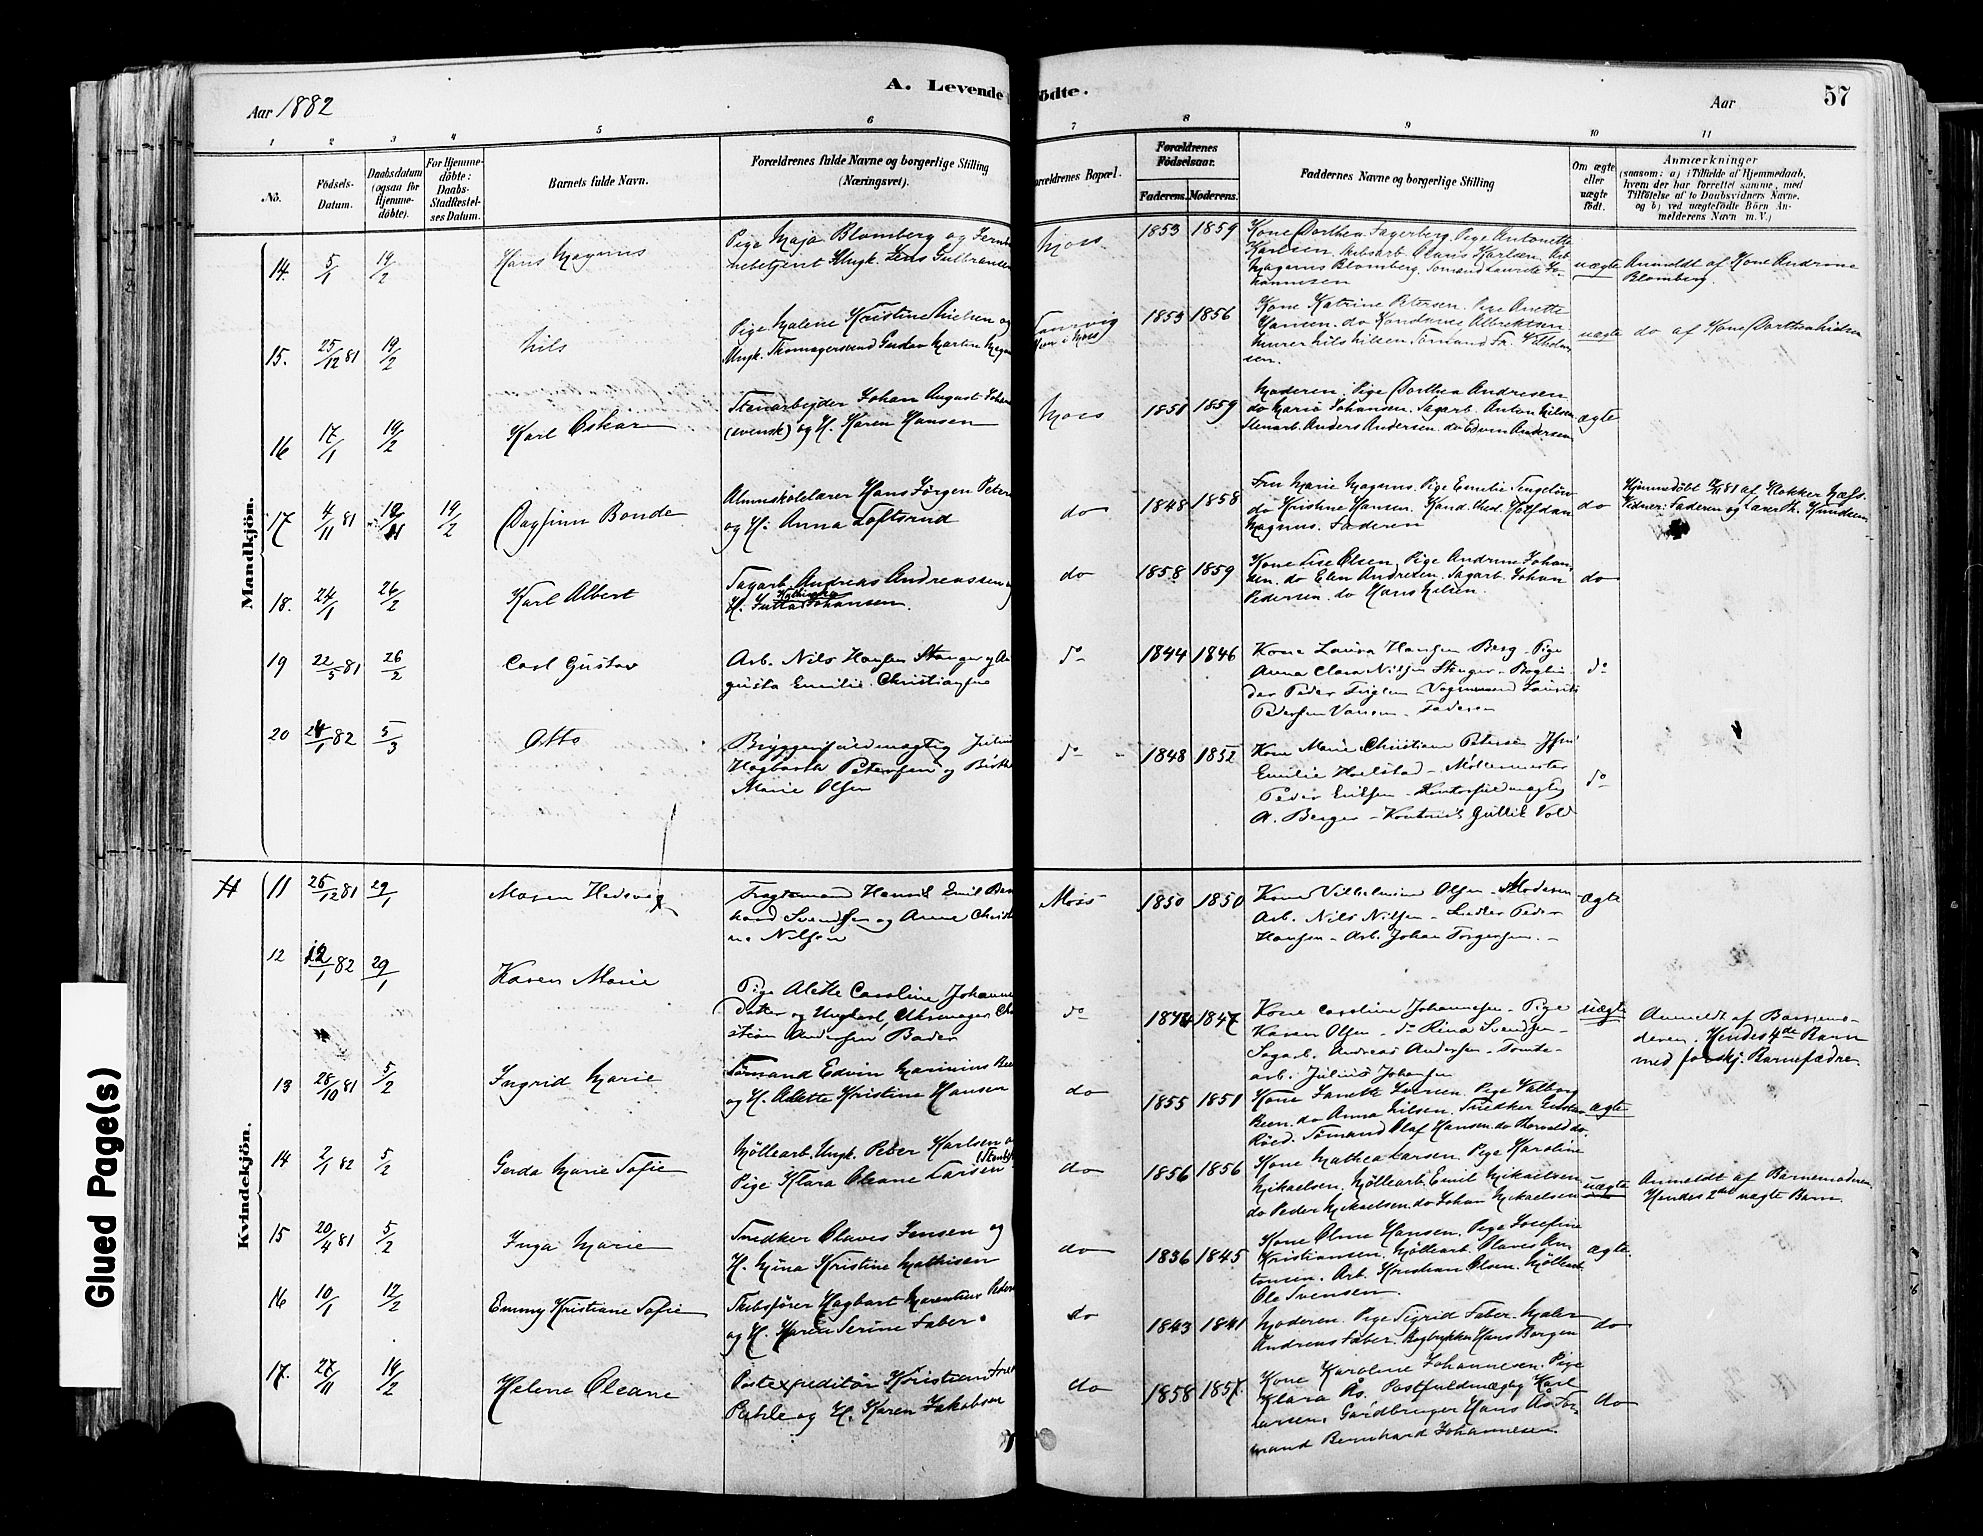 Aar 1882
A. Levende
födte.
Aar
57
1 2 3 4 5 6 7 8 9 10 11
No.
Födsels-
Datum.
Daabsdatum
(ogsaa for
Hjemme-
döbte).
For Hjemme-
döbte:
Daabs-
Stadfæstel-
ses Datum.
Barnets fulde Navn.
Forældrenes fulde Navne og borgerlige Stilling
(Næringsvei).
Forældrenes Bopæl.
Forældrenes
Födselsaar.
Faderens. Moderens.
Faddernes Navne og borgerlige Stilling
Om ægte
eller
uægte
födt.
Anmærkninger
(saasom: a) i Tilfælde af Hjemmedaab,
hvem der har forrettet samme, med
Tilföielse af to Daabsvidners Navne.
og b) ved uægtefödte Börn An-
melderens Navn m. V.)
Mandkjön.
14. 5/1 19/2 Hans Magnus
Pige Maja Blomberg og Jernba
nebetjent Ungk. Jens Gulbrandsen
Moss 1853 1859
Kone Dorthea Fagerberg. Pige Antonette
Karlsen. Skibsarb. Olaris Karlsen. Arb.
Magnus Blomberg. Sömand Laurits Jo-
hannesen
uægte
Anmeldt af Kone Andrine
Blomberg.
15. 25/12 81 19/2 Nils
Pige Malene Kristine Nielsen og
Ungk. Gustav Martin
1853 1856
Kone Katrine Petersen. Pige Anette
Hansen. do Albrektsen
Murer Nils Nilsen Sömand Fr. Vilhelm
sen.
uægte
do af Kone Dorthea Nielsen
16 17/1 19/2 Karl Oskar
Stenarbejder Johan August Johan
(svensk) og H. Karen Hansen
Moss 1851 1859
Moderen. Pige Dorthea Andresen
do Maria Johansen. Sagarb. Anton Nilsen
Stenarb. Anders Andersen. do Edvin Andersen
ægte
17 4/11 81 19/2 Dagfinn Bonde
Almuskolelærer Hans Jörgen Peters
og H. Anna Loftsrud
do 1848 1858
Fru Marie Magnus. Pige Emilie
do Kristine Hansen. Kand. theol. Halfdan
Magnus. Faderen
do
Hjemmedöbt 81 af Klokker Næss.
Vidner: Faderen og Lærer K. Knudsen
18. 24/1 26/2 Karl Albert
Sagarb. Andreas Andreassen og
H. Jutta Johansen.
do 1858 1859
Kone Lise Olsen. Pige Andrine Johan
sen. do Elen Andresen. Sagarb. Johan
Pedersen. do Hans Nilsen.
do
19 22/5 81 26/2 Carl Gustav
Arb. Nils Hansen Stanger og Au
gusta Emilie Christiansen
do 1844 1846
Kone Laura Hansen Berg. Pige
Anna Clara Nilsen Stenger - Bogbin
der Peder - Vognmand Laurits
Pedersen Vansem. Faderen
do
20 24/1 82 5/3 Otto
Bryggerifuldmægtig Julius
Hagbarth Petersen og Birthe
Marie Olsen
do 1848 1852
Kone Marie Christiane Petersen
Emilie Hoelstad - Möllermester
Peder Eriksen - Kontorfuldmægtig
A. Berger - Kontorist Gullik Vold
do
Kvindekjön.
11 26/12 81 29/1 Maren Hedevig
Henrik Emil Bern
hard Svendsen og Anne Christi
ne Nilsen
Moss 1850 1850
Kone Vilhelmine Olsen - Moderen
Arb. Nils Nilsen - Peder
Hansen - Arb. Johan Torgersen. -
ægte
12 12/1 82 29/1 Karen Marie
Pige Alette Caroline Johannes
datter og Ungkarl, Uhrmager Chri
stian Andersen Bader
do 1844 1847
Kone Caroline Johannesen - Pige
Karen Olsen - do Rina Svendsen -
Sagarb. Andreas Andersen - Tomte-
arb. Julius Johansen
uægte
Anmeldt af Barnemo-
deren. Hendes 4de Barn
med forskj. Barnefædre.
13 28/10 81 5/2 Ingrid Marie
Sömand Edvin Marinius
og H. Alette Kristine Hansen
do 1855 1851
Kone Iversen. Pige Valborg
do Anna Nilsen. Snedker Gustav
Röed. Sömand Olaf Hansen. do
ægte
14 2/1 82 5/2 Gerda Marie Sofie
Möllearb. Ungk. Peter Karlsen og
Pige Klara Oleane Larsen
do 1856 1856
Kone Mathea Larsen. Pige Karoline
Mikaelsen. Möllearb. Emil Mikaelsen
do Peder Mikaelsen. do Johan Mikaelsen
uægte
Anmeldt af Barnemoderen
Hendes 2det uægte Barn.
15 20/4 81 5/2 Inga Marie
Snedker Olaves Jensen og
H. Mina Kristine Mathisen
do 1836 1845
Kone Oline Hansen. Pige Josefine
Kristiansen. Möllearb. Olaves An
tonsen. Arb. Kristian Olsen. Möllearb.
Ole Svensen
ægte.
16 10/1 12/2 Emmy Kristiane Sofie
Skibsförer Hagbart Marentius Peters
og H. Karen Serine Faber.
do 1843 1841
Moderen. Pige Sigrid Faber. Maler
Andreas Faber. Bogtrykker Hans Borgen
do
17. 27/11 19/2 Helene Oleane
Postexpeditör Kristian
og H. Karen Jakobsen
do 1858 1857.
Kone Karoline Johannesen. Pige
Klara Ås. Postfuldmægtig Karl
Larsen. Gaardbruger Hans Ås.
mand Bernhard Johannesen
do
Glued Page(s)